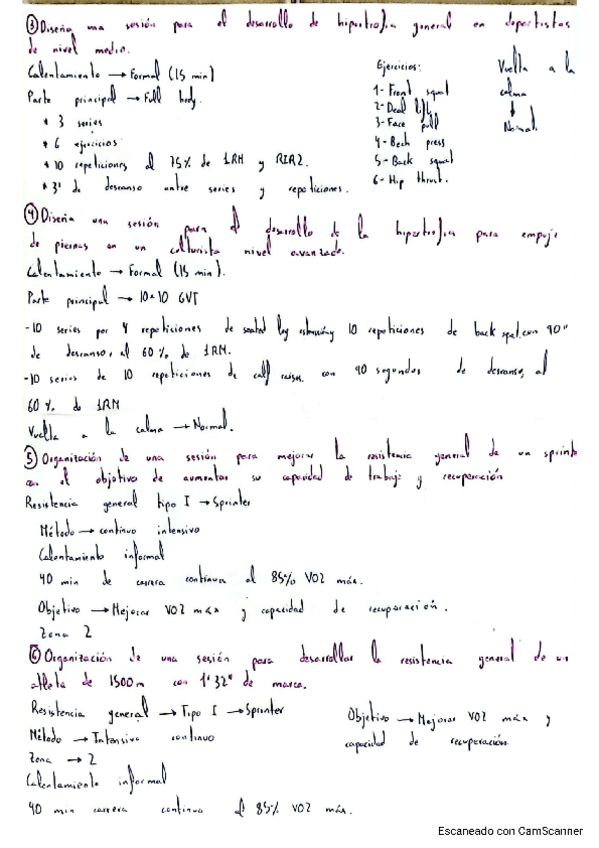 ③ Diseña una sesión para el desarrollo de hipertrofia general en deportistas
de nivel medio.
Calentamiento → Formal (15 min)
Parte principal → Full body.
* 3 series
* 6 ejercicios
* 10 repeticiones al 75% de 1RM y RIR2.
* 3' de descanso entre series y repeticiones.
Ejercicios:
1- Front squat
2- Dead lift
3- Face pull
4- Bech press
5- Back squat
6- Hip thrust.
Vuelta a la
calma
↓
Normal.
④ Diseña una sesión para el desarrollo de la hipertrofia para empuje
de piernas en un culturista nivel avanzado.
Calentamiento → Formal (15 min).
Parte principal → 10x10 GVT
-10 series por 4 repeticiones de seated leg 10 repeticiones de back con 90"
de descanso, al 60% de 1RM.
-10 series de 10 repeticiones de calf raises con 90 segundos de descanso, al
60% de 1RM
Vuelta a la calma → Normal.
⑤ Organización de una sesión para mejorar la resistencia general de un sprinter
con el objetivo de aumentar su capacidad de trabajo y recuperación
Resistencia general tipo I → Sprinter
Método → continuo intensivo
Calentamiento informal
40 min de carrera continua al 85% VO2 máx.
Objetivo → Mejorar VO2 máx y capacidad de recuperación.
Zona 2
⑥ Organización de una sesión para desarrollar la resistencia general de un
atleta de 1500m con 1'32" de marca.
Resistencia general → Tipo I → Sprinter
Método → Intensivo continuo
Zona → 2
Calentamiento informal
40 min carrera continua al 85% VO2 máx.
Objetivo → Mejorar VO2 máx y
capacidad de recuperación
Escaneado con CamScanner